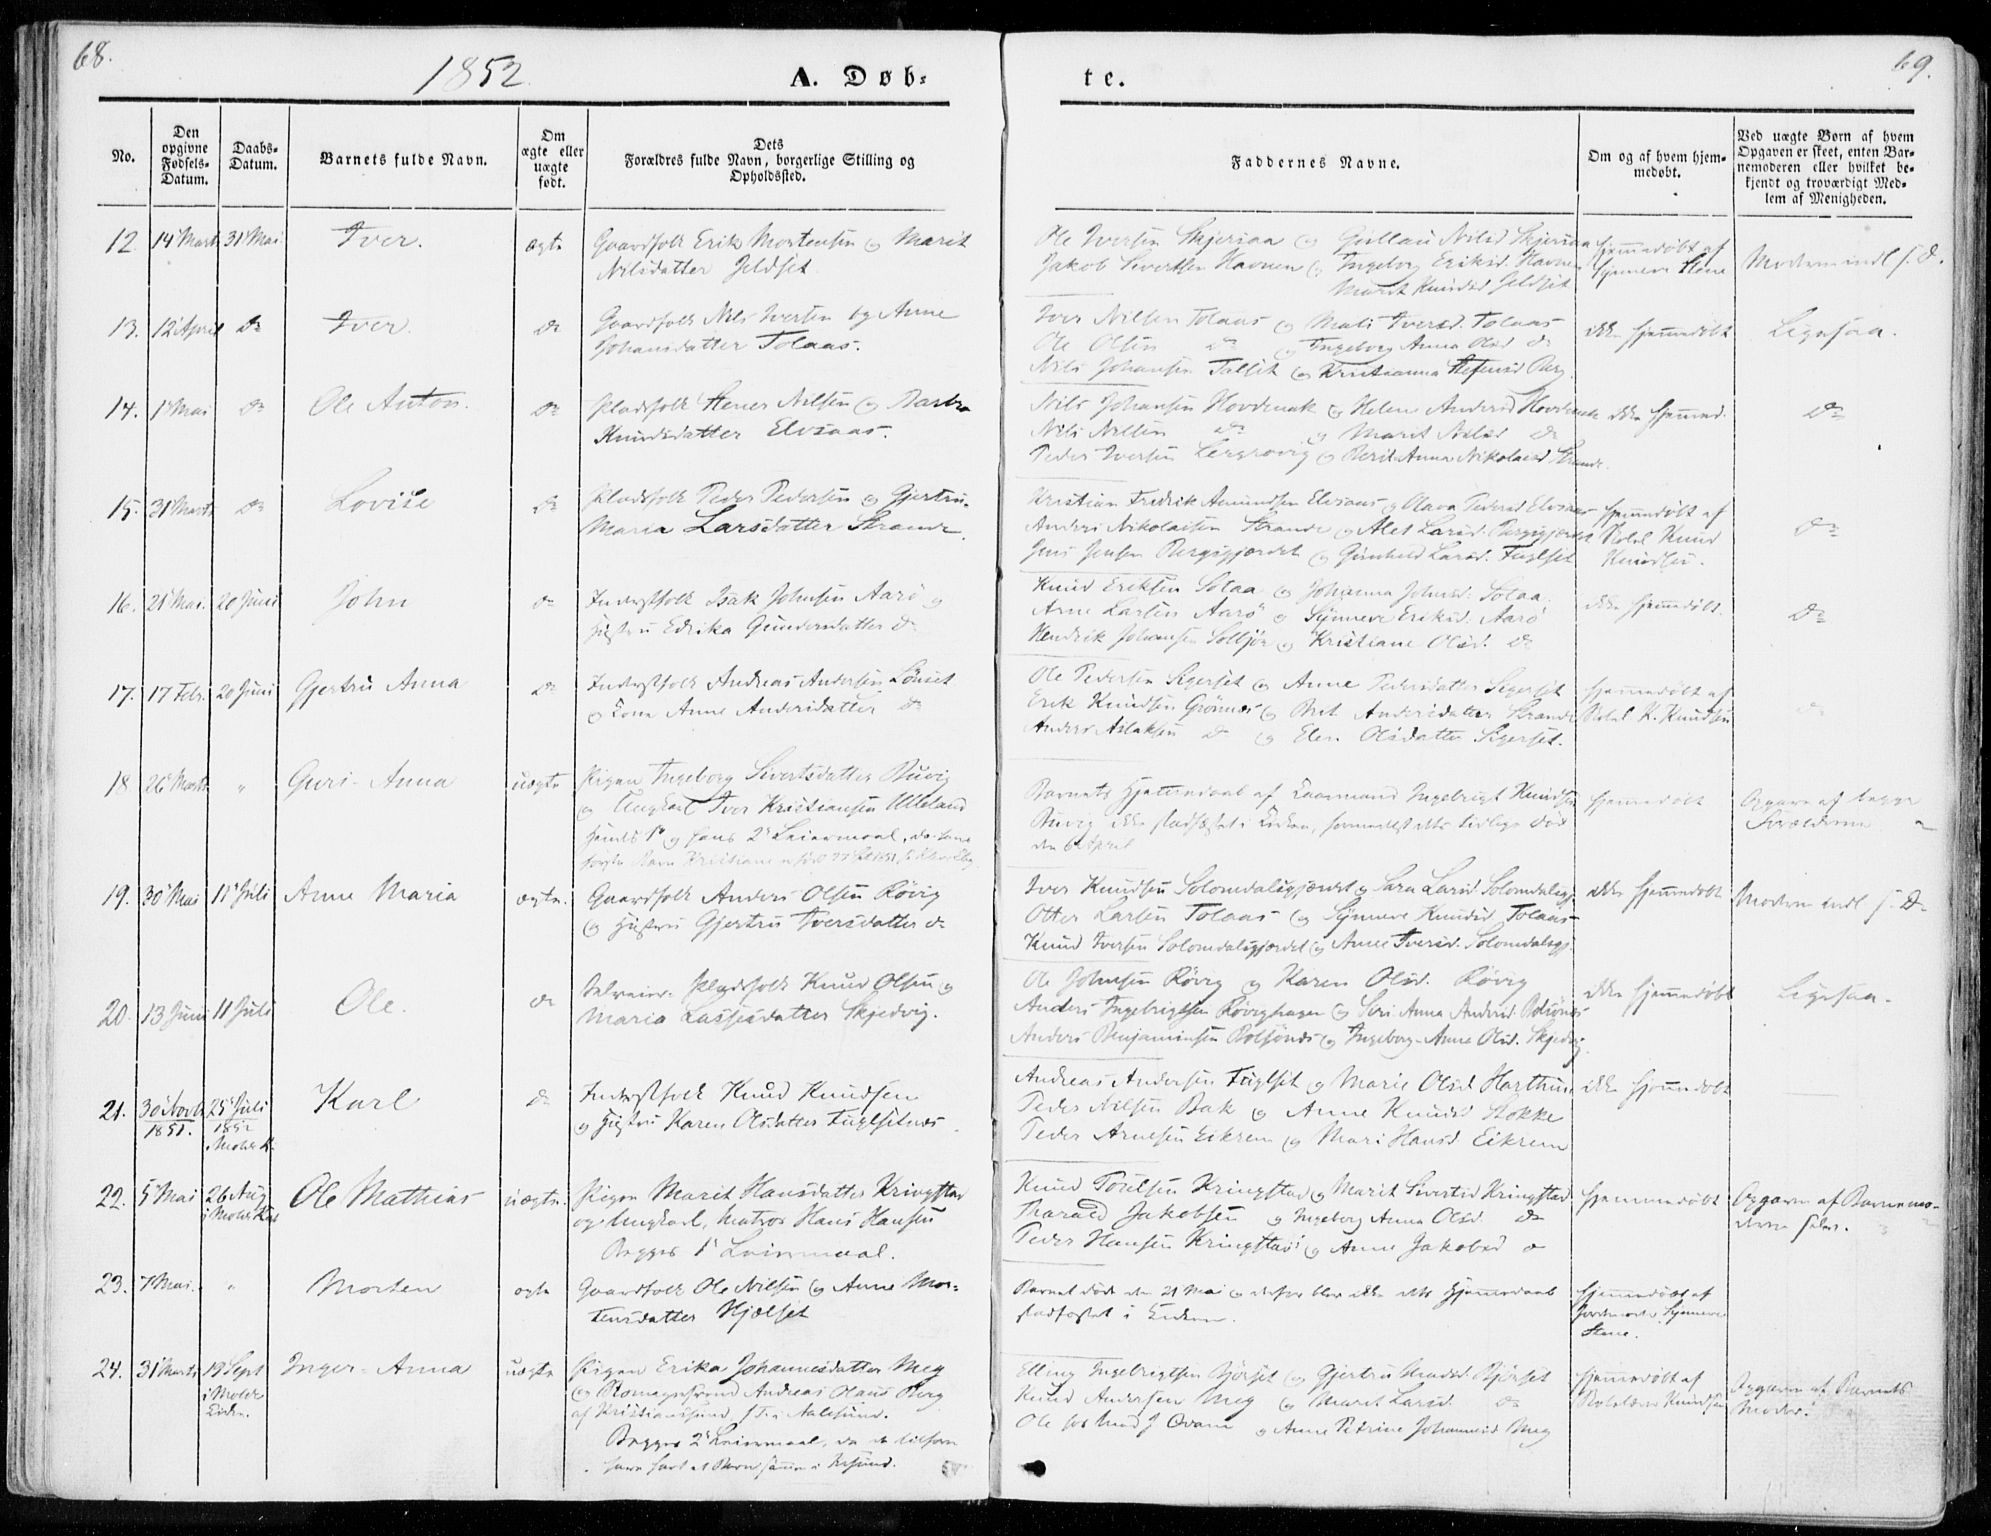 68.
1852
A. Døb=
te.
69.
No.
Den opgivne Fødsels-Datum.
Daabs-Datum.
Barnets fulde Navn.
Om ægte eller uægte født.
Dets Forældres fulde Navn, borgerlige Stilling og Opholdssted.
Faddernes Navne.
Om og af hvem hjemmedøbt.
Ved uægte Børn af hvem Opgaven er skeet, enten Barnemoderen eller hvilket bekjendt og troværdigt Medlem af Menigheden.
12 14 Marts 31 Mai Iver. ægte Gaardfolk Erik Mortensen og Marit
Nilsdatter Jeldset
Ole Iversen Skjersaa og Nilsd Skjersaa
Jakob Sivertsen Havnen og Ingeborg Eriksd. Havnen
Marit Knudsd Jeldset
Hjemmedøbt af
Synneve Stene
13. 12 April do Iver. do Gaardfolk Nils Iversen og Anne
Johansdatter Tolaas.
Iver Nilsen Tolaas og Mali Iversd. Tolaas
Ole Olsen do og Ingeborg Anna Olsd do
Nils Johansen Talset og Kristianna Berg.
ikke hjemmedøbt
Ligesaa.
14. 1 Mai do Ole Anton. do Pladsfolk Stener Nilsen og
Knudsdatter Elvsaas.
Nils Johansen Hovdenak og Helene Andersd Hovdenak
Nils Nilsen do og Marit Nilsd do
Peder Iversen og Berit Anna Nikolaisd Strande.
ikke hjemmed.
do
15. 31 Marts do Lovise do Pladsfolk Peder Pedersen og Gjertru-
Maria Larsdatter Strande.
Kristian Fredrik Amundsen Elvsaas og Olava Pedersd Elvsaas
Anders Nikolaisen Strande og Alet Larsd.
Jens Jensen og Gunhild Larsd. Fuglset
hjemmedøbt af
Knud
Knudsen.
do
16. 21 Mai. 20 Juni John do Inderstfolk Isak Johnsen Aarø og
Hustru Edrika Gundersdatter do
Knud Eriksen Solaa og Johanna Johnsd. Solaa.
Arne Larsen Aarø og Synneve Eriksd. Aarø
Hendrik Johansen Solbjør og Kristiane Olsd. do
ikke hjemmedøbt.
do
17. 17 Febr. 20 Juni Gjertru Anna do Inderstfolk Andreas Andersen Lønset
og Kone Anne Andersdatter do
Ole Pedersen Segerset og Anne Pedersdatter Segerset
Erik Knudsen Grønnes og Brit Andersdatter Strande
Anders Aslaksen do og Elen Olsdatter Segerset.
hjemmedøbt af
K. Knudsen
do
18 26 Marts " Guri-Anna uægte Pigen Ingeborg Sivertsdatter Buvig
og Ungkarl Iver Kristiansen Ulleland
hendes 1ste og hans 2det Leiermaal,
Barnets Hjemmedaab af Ingebrigt Knudsen
Buvig ikke stadfæstet i Kirken, formedelst dets tidlige død
den 6 April
hjemmedøbt
Opgave af begge
Forældrene
19. 30 Mai 11 Juli Anne Maria ægte. Gaardfolk Anders Olsen Røvig
og Hustru Gjertru Iversdatter do
Iver Knudsen Solomdalsgjærdet og Sara Larsd Solomdalsgj.
Otter Larsen Tolaas og Synneve Knudsd. Tolaas
Knud Iversen Solomdalsgjærdet og Anne Iversd. Solomdalsgj.
ikke hjemmedøbt
20. 13 Juni 11 Juli Ole. do Selveier- Pladsfolk Knud Olsen og
Maria Lassesdatter Skjedvig.
Ole Johnsen Røvig og Karen Olsd. Røvig
Anders Ingebrigtsen Røvighagen og Seri-Anna Andersd. Bolsønes
Anders Benjaminsen Bolsønes og Ingeborg-Anna Olsd. Skjedvig
ikke hjemmedøbt
Ligesaa-
21. 30 Novbr 1851. 25 Juli 1852 i Molde K. Karl do Inderstfolk Knud Knudsen
og Hustru Karen Olsdatter Fuglsetnes
Andreas Andersen Fuglset og Marie Olsd.
Peder Nilsen Bak og Anne Knudsd Stokke
Peder Arnesen Eikrem og Mari Hansd. Eikrem
ikke hjemmedøbt
22. 5 Mai 26 Aug i Molde Ole Mathias uægte. Pigen Marit Hansdatter Kringstad
og Ungkarl, Matros Hans Hansen
Begges 1ste Leiermaal.
Knud Kringstad og Marit Sivertsd Kringstad
Jakobsen og Ingeborg Anna Olsd. do
Peder Hansen Kringstad og Anne Jakobsd do
hjemmedøbt
Opgave af Barnemo-
deren selv.
23. 7 Mai. " Morten ægte Gaardfolk Ole Nilsen og Anne Mor-
tensdatter Hjelset
Barnet døde den 21 Mai og derfor blev ikke dets Hjemmedaab
stadfæstet i Kirken.
hjemmedøbt af
Jordemoder Synneve
Stene.
24. 31 Marts 19 Sept i Molde Kirke. Inger-Anna uægte Pigen Erika Johannesdatter Meg
og Andreas Olaus Berg
af Kristianssund, f. T. i Aalesund.
Begges 2det Leiermaal, da de tilforn
have havt et Barn sammen i Krsund.
Elling Ingebrigtsen Bjørset og Gjertru Bjørset
Knud Andersen Meg og Marit Larsd. do
Ole Qvam og Anne Petrine Johannesd Meg
hjemmedøbt af
Knudsen
Opgave af Barnets
Moder.